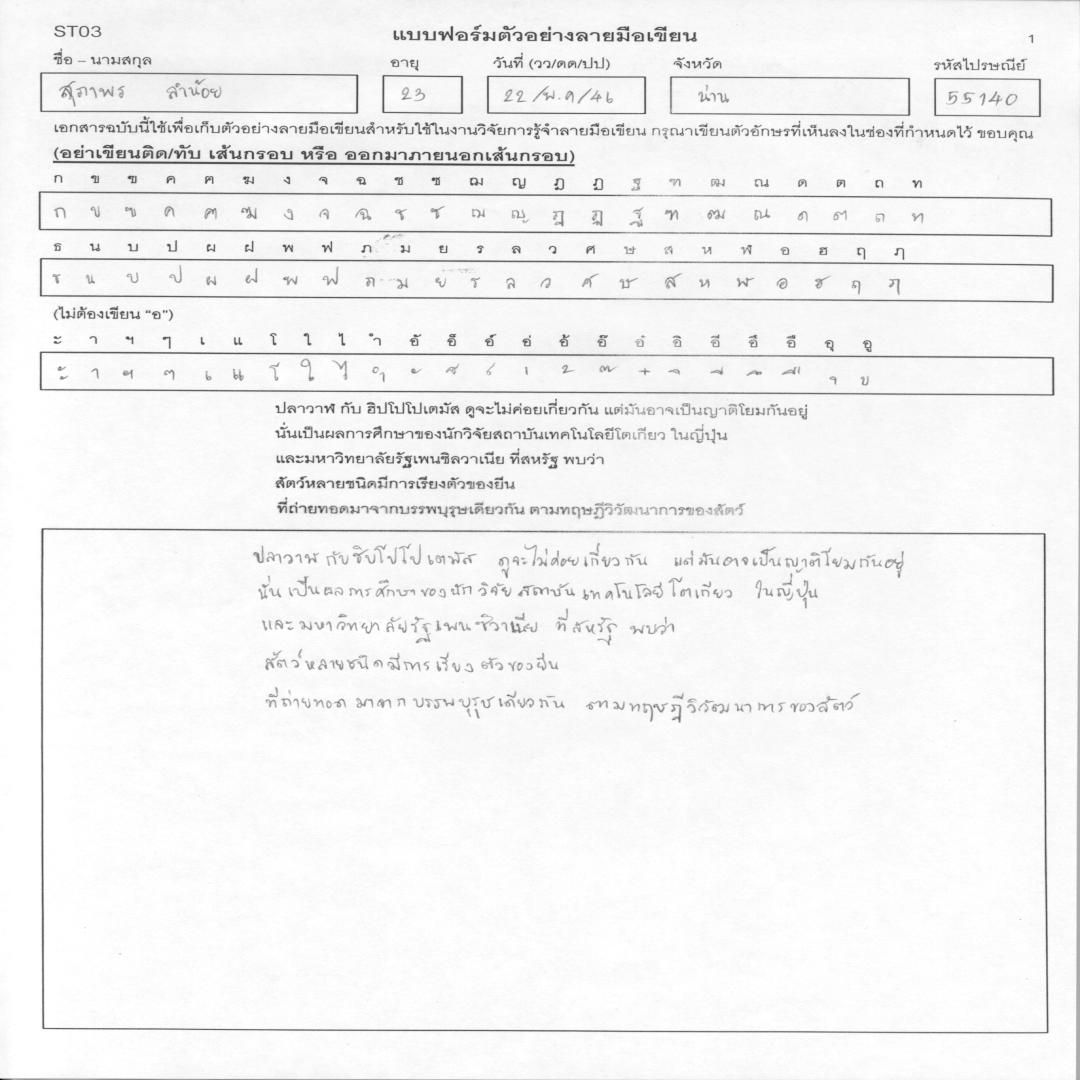 ST03
แบบฟอร์มตัวอย่างลายมือเขียน
1
ชื่อ – นามสกุล อายุ วันที่ (วว/ดด/ปป) จังหวัด รหัสไปรษณีย์
สุภาพร สำน้อย 23 22/พ.ค/46 น่าน 55140
เอกสารฉบับนี้ใช้เพื่อเก็บตัวอย่างลายมือเขียนสำหรับใช้ในงานวิจัยการรู้จำลายมือเขียน กรุณาเขียนตัวอักษรที่เห็นลงในช่องที่กำหนดไว้ ขอบคุณ
(อย่าเขียนติด/ทับ เส้นกรอบ หรือ ออกมาภายนอกเส้นกรอบ)
ก ข ฃ ค ฅ ฆ ง จ ฉ ช ซ ฌ ญ ฎ ฏ ฐ ฑ ฒ ณ ด ต ถ ท
ก ข ฃ ค ฅ ฆ ง จ ฉ ช ซ ฌ ญ ฎ ฏ ฐ ฑ ฒ ณ ด ต ถ ท
ธ น บ ป ผ ฝ พ ฟ ภ ม ย ร ล ว ศ ษ ส ห ฬ อ ฮ ฤ ฦ
ธ น บ ป ผ ฝ พ ฟ ภ ม ย ร ล ว ศ ษ ส ห ฬ อ ฮ ฤ ฦ
(ไม่ต้องเขียน “อ”)
ะ า ฯ ๆ เ แ โ ใ ไ ำ อั อ็ อ์ อ่ อ้ อ๊ อ๋ อิ อี อึ อื อุ อู
ะ า ฯ ๆ เ แ โ ใ ไ ำ ั ็ ์ ่ ้ ๊ ๋ ิ ี ึ ื ุ ู
ปลาวาฬ กับ ฮิปโปโปเตมัส ดูจะไม่ค่อยเกี่ยวกัน แต่มันอาจเป็นญาติโยมกันอยู่
นั่นเป็นผลการศึกษาของนักวิจัยสถาบันเทคโนโลยีโตเกียว ในญี่ปุ่น
และมหาวิทยาลัยรัฐเพนซิลวาเนีย ที่สหรัฐ พบว่า
สัตว์หลายชนิดมีการเรียงตัวของยีน
ที่ถ่ายทอดมาจากบรรพบุรุษเดียวกัน ตามทฤษฎีวิวัฒนาการของสัตว์
ปลาวาฬ กับฮิปโปโปเตมัส ดูจะไม่ค่อยเกี่ยวกัน แต่มันอาจเป็นญาติโยมกันอยู่
นั่นเป็นผลการศึกษาของนักวิจัยสถาบันเทคโนโลยีโตเกียว ในญี่ปุ่น
และมหาวิทยาลัยรัฐเพนซิวาเนีย ที่สหรัฐ พบว่า
สัตว์หลายชนิดมีการเรียงตัวของยีน
ที่ถ่ายทอดมาจากบรรพบุรุษเดียวกัน ตามทฤษฎีวิวัฒนาการของสัตว์